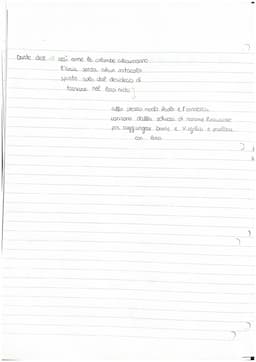 Dante dice: così come le colombe attraversano
l'aria senza alcun ostacolo
spinte solo dal desiderio di
tornare nel loro nido
allo stesso modo Paolo e Francesca
escono dalla schiera di anime
per raggiungere Dante e Virgilio e parlare
con loro